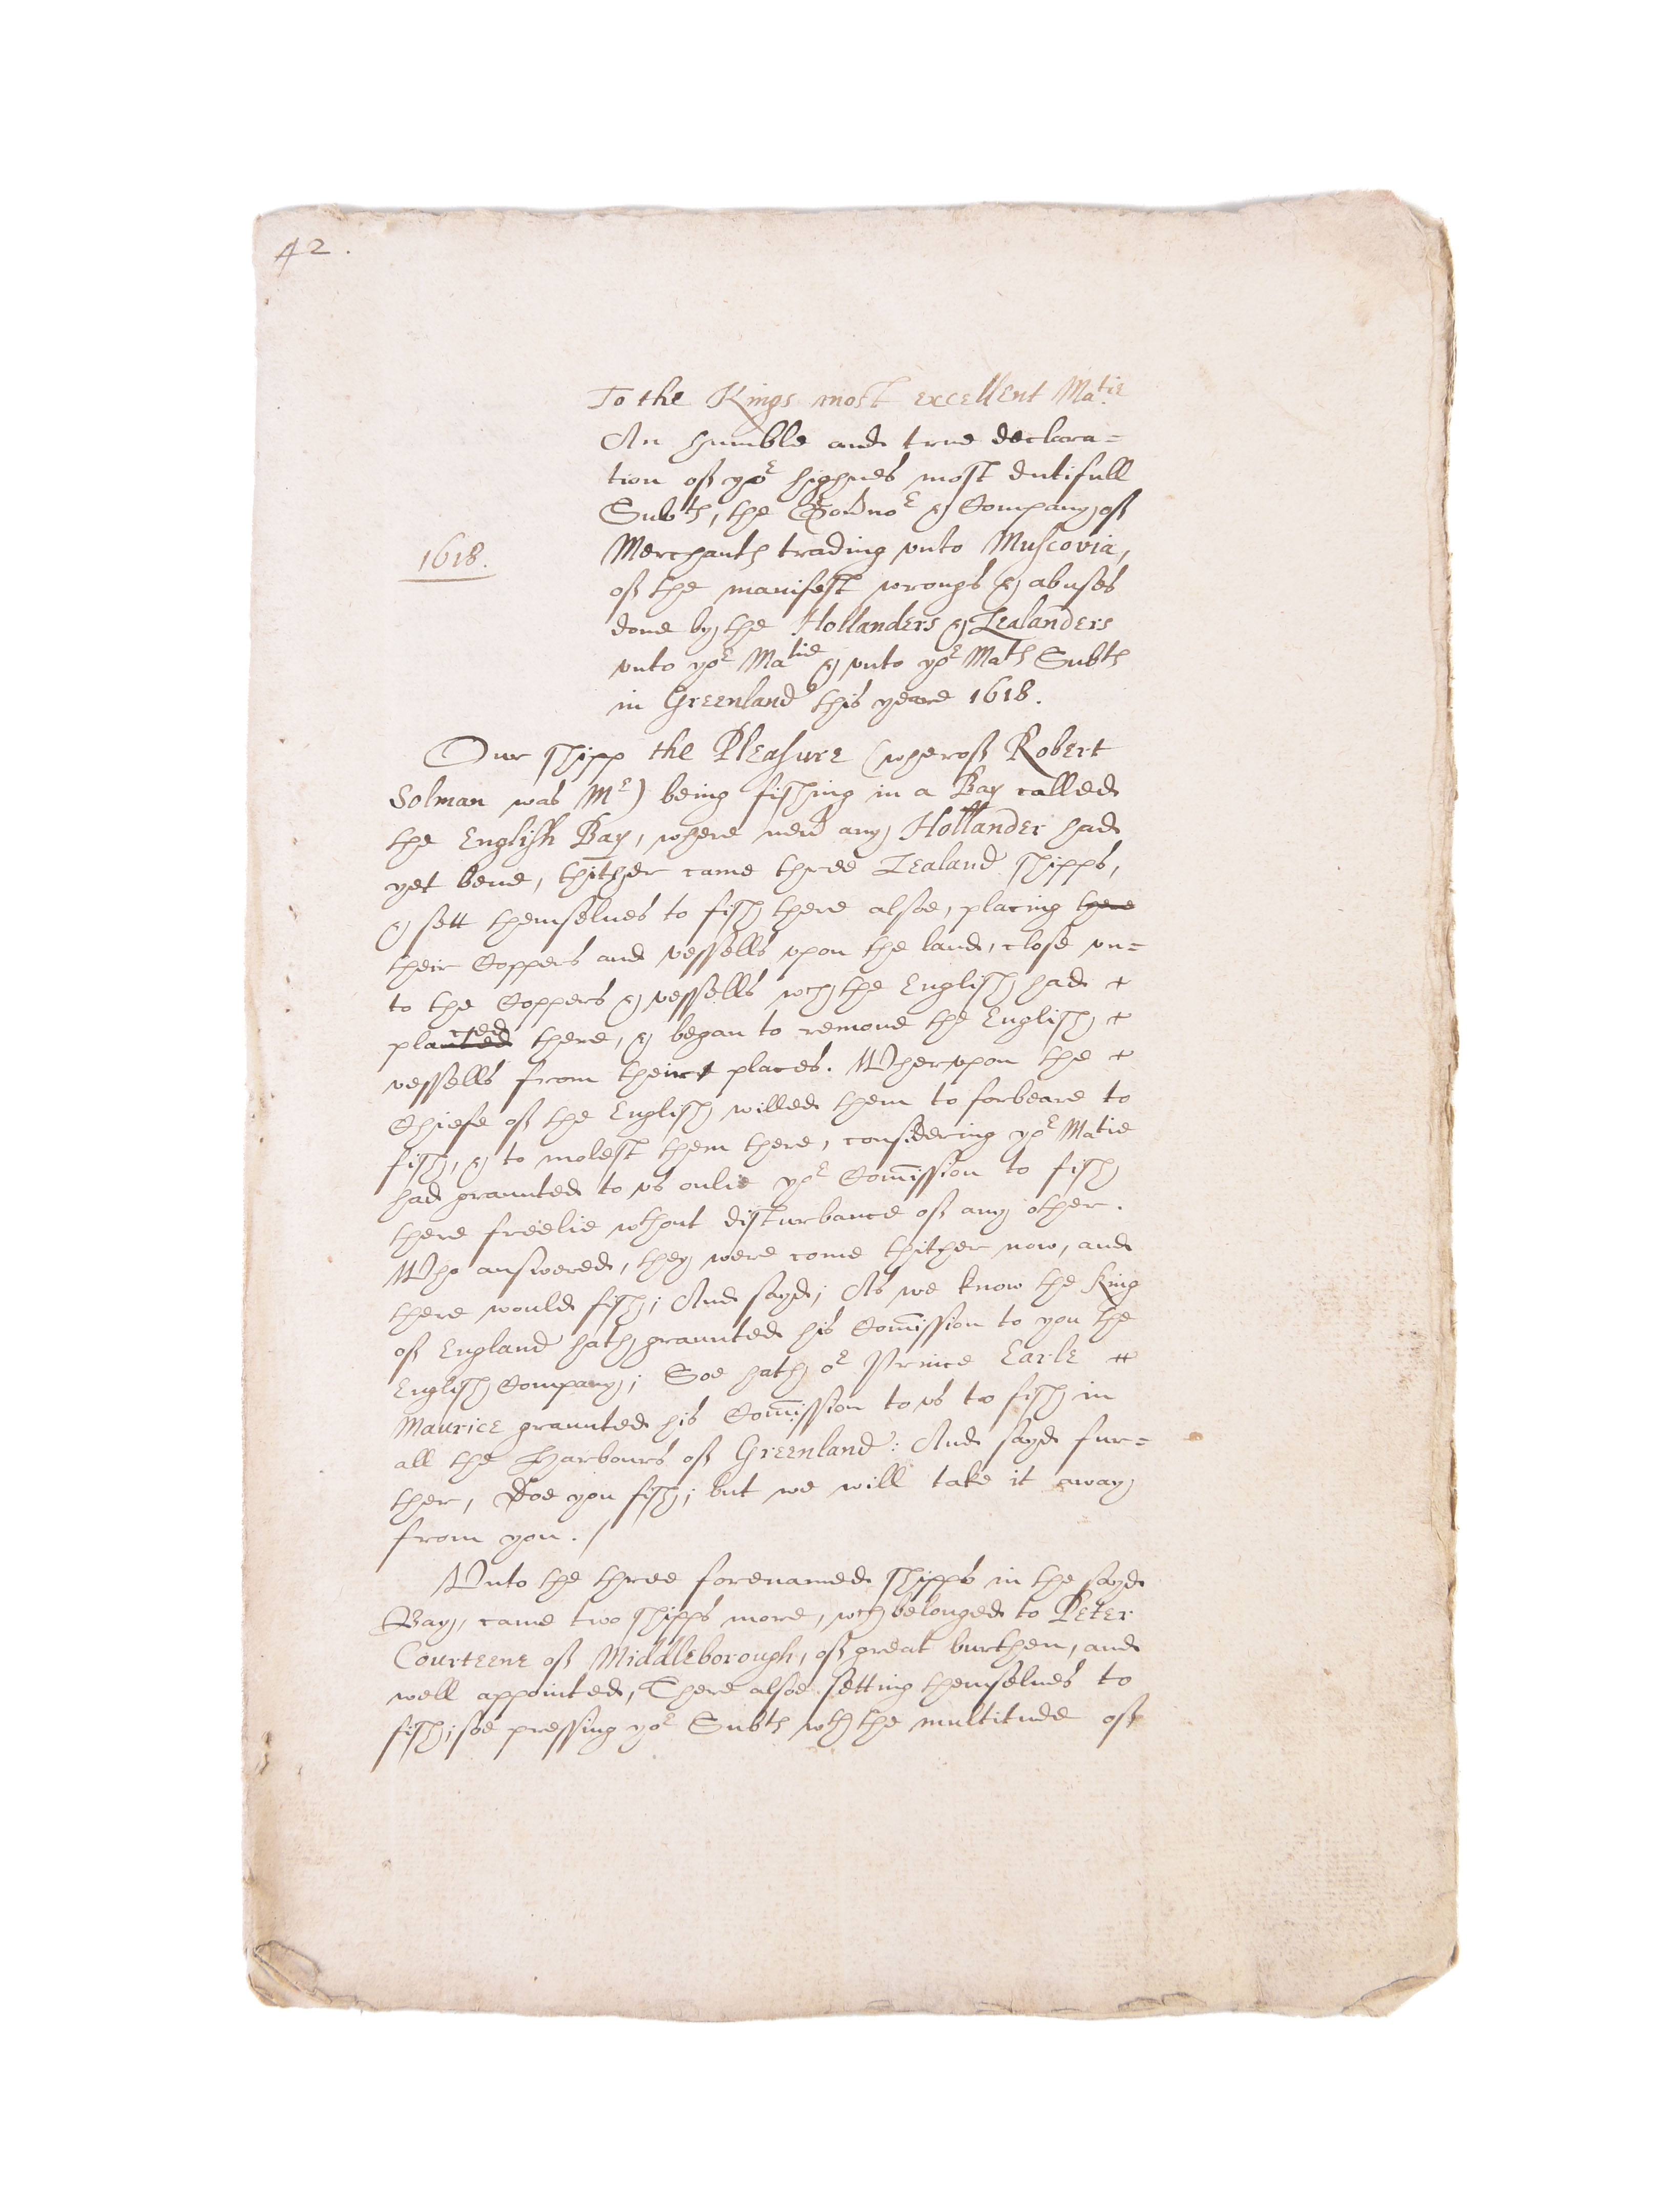 42.
To the Kings most excellent Ma.tie
An humble and true declara=
tion of yor highnes most dutifull
Subts, the Gov̄nor & Company of
1618.
Merchants trading vnto Muscovia,
of the manifest wrongs & abuses
done by the Hollanders & Zealanders
vnto yor Matie & vnto yor Mats Subts
in Greenland this yeare 1618.
Our shipp the Pleasure (wherof Robert
Solman was Mr) being fishing in a Bay called
the English Bay, where nev̄ any Hollander had
yet bene, thither came three Zealand shipps,
& sett themselves to fish there alsoe, placing there
their Coppers and vessells vpon the land, close vn=
to the Coppers & vessells wch the English had +
planted ced there, & began to remoue the English +
vessells from their places. Whervpon the +
Chiefe of the English willed them to forbeare to
fish, & to molest them there, considering yor Matie
had graunted to vs onlie yor Com̄ission to fish
there freelie wthout disturbance of any other.
Who answered, they were come thither now, and
there would fish; And sayd; As we know the King
of England hath graunted his Com̄ission to you the
English Company; Soe hath or Prince Earle ++
Maurice graunted his Com̄ission to vs to fish in
all the Harbours of Greenland: And sayd fur=
ther, Doe you fish; but we will take it away
from you./
Vnto the three forenamed shipps in the sayd
Bay, came two shipps more, wch belonged to Peter
Courteene of Middleborough, of great burthen, and
well appointed, There alsoe setting themselues to
fish; soe pressing yor Subts wth the multitude of